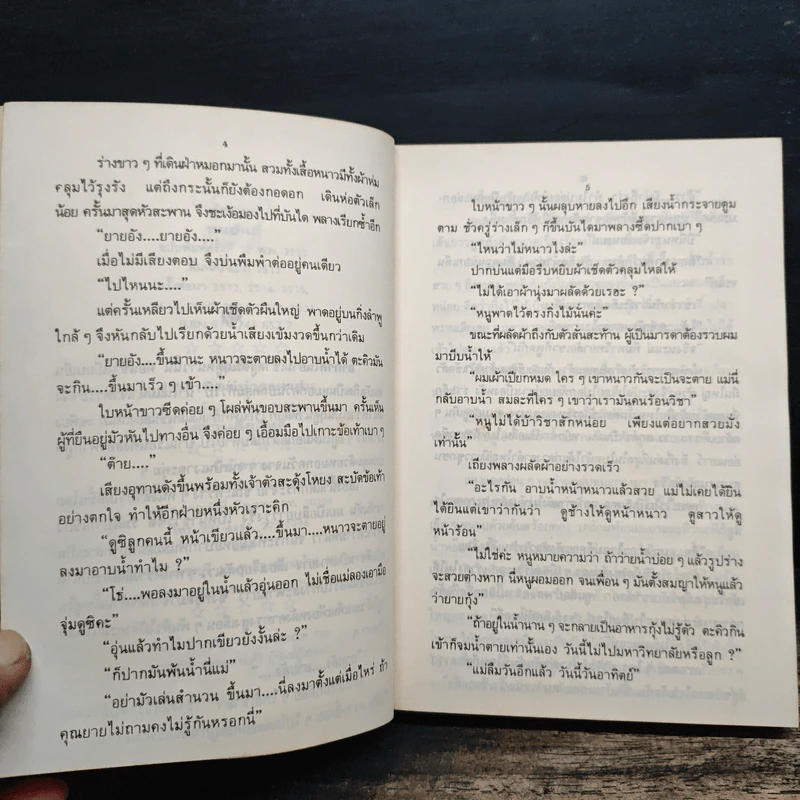 4
ร่างขาว ๆ ที่เดินฝ่าหมอกมานั้น สวมทั้งเสื้อหนาวมีทั้งผ้าห่ม
คลุมไว้รุงรัง แต่ถึงกระนั้นก็ยังต้องกอดอก เดินห่อตัวเล็ก
น้อย ครั้นมาสุดหัวสะพาน จึงชะเง้อมองไปที่บันได พลางเรียกซ้ำอีก
“ยายอัง....ยายอัง....”
เมื่อไม่มีเสียงตอบ จึงบ่นพึมพำต่ออยู่คนเดียว
“ไปไหนนะ....”
แต่ครั้นเหลียวไปเห็นผ้าเช็ดตัวผืนใหญ่ พาดอยู่บนกิ่งลำพู
ใกล้ ๆ จึงหันกลับไปเรียกด้วยน้ำเสียงเข้มงวดขึ้นกว่าเดิม
“ยายอัง....ขึ้นมานะ หนาวจะตายลงไปอาบน้ำได้ ตะคิวมัน
จะกิน....ขึ้นมาเร็ว ๆ เข้า....”
ใบหน้าขาวซีดค่อย ๆ โผล่พ้นขอบสะพานขึ้นมา ครั้นเห็น
ผู้ที่ยืนอยู่มัวหันไปทางอื่น จึงค่อย ๆ เอื้อมมือไปเกาะข้อเท้าเบา ๆ
“ต๊าย....”
เสียงอุทานดังขึ้นพร้อมทั้งเจ้าตัวสะดุ้งโหยง สะบัดข้อเท้า
อย่างตกใจ ทำให้อีกฝ่ายหนึ่งหัวเราะคิก
“ดูซิลูกคนนี้ หน้าเขียวแล้ว....ขึ้นมา....หนาวจะตายอยู่
ลงมาอาบน้ำทำไม ?”
“โช่....พอลงมาอยู่ในน้ำแล้วอุ่นออก ไม่เชื่อแม่ลองเอามือ
จุ่มดูซิคะ”
“อุ่นแล้วทำไมปากเขียวยังงั้นล่ะ ?”
“ก็ปากมันพ้นน้ำนี่แม่”
“อย่ามัวเล่นสำนวน ขึ้นมา....นี่ลงมาตั้งแต่เมื่อไหร่ ถ้า
คุณยายไม่ถามคงไม่รู้กันหรอกนี่”
5
ใบหน้าขาว ๆ นั้นผลุบหายลงไปอีก เสียงน้ำกระจายตูม
ตาม ชั่วครู่ร่างเล็ก ๆ ก็ขึ้นบันไดมาพลางซี้ดปากเบา ๆ
“ไหนว่าไม่หนาวไงล่ะ”
ปากบ่นแต่มือรีบหยิบผ้าเช็ดตัวคลุมไหล่ให้
“ไม่ได้เอาผ้านุ่งมาผลัดด้วยเรอะ ?”
“หนูพาดไว้ตรงกิ่งไม้นั่นค่ะ”
ขณะที่ผลัดผ้าถึงกับตัวสั่นสะท้าน ผู้เป็นมารดาต้องรวบผม
มาบีบน้ำให้
“ผมเผ้าเปียกหมด ใคร ๆ เขาหนาวกันจะเป็นจะตาย แม่นี่
กลับอาบน้ำ สมละที่ใคร ๆ เขาว่าเรามันคนร้อนวิชา”
“หนูไม่ได้บ้าวิชาสักหน่อย เพียงแต่อยากสวยมั่ง
เท่านั้น”
เถียงพลางผลัดผ้าอย่างรวดเร็ว
“อะไรกัน อาบน้ำหน้าหนาวแล้วสวย แม่ไม่เคยได้ยิน
ได้ยินแต่เขาว่ากันว่า ดูช้างให้ดูหน้าหนาว ดูสาวให้ดู
หน้าร้อน”
“ไม่ใช่ค่ะ หนูหมายความว่า ถ้าว่ายน้ำบ่อย ๆ แล้วรูปร่าง
จะสวยต่างหาก นี่หนูผอมออก จนเพื่อน ๆ มันตั้งสมญาให้หนูแล้ว
ว่ายายกุ้ง”
“ถ้าอยู่ในน้ำนาน ๆ จะกลายเป็นอาหารกุ้งไม่รู้ตัว ตะคิวกิน
เข้าก็จมน้ำตายเท่านั้นเอง วันนี้ไม่ไปมหาวิทยาลัยหรือลูก ?”
“แม่ลืมวันอีกแล้ว วันนี้วันอาทิตย์”